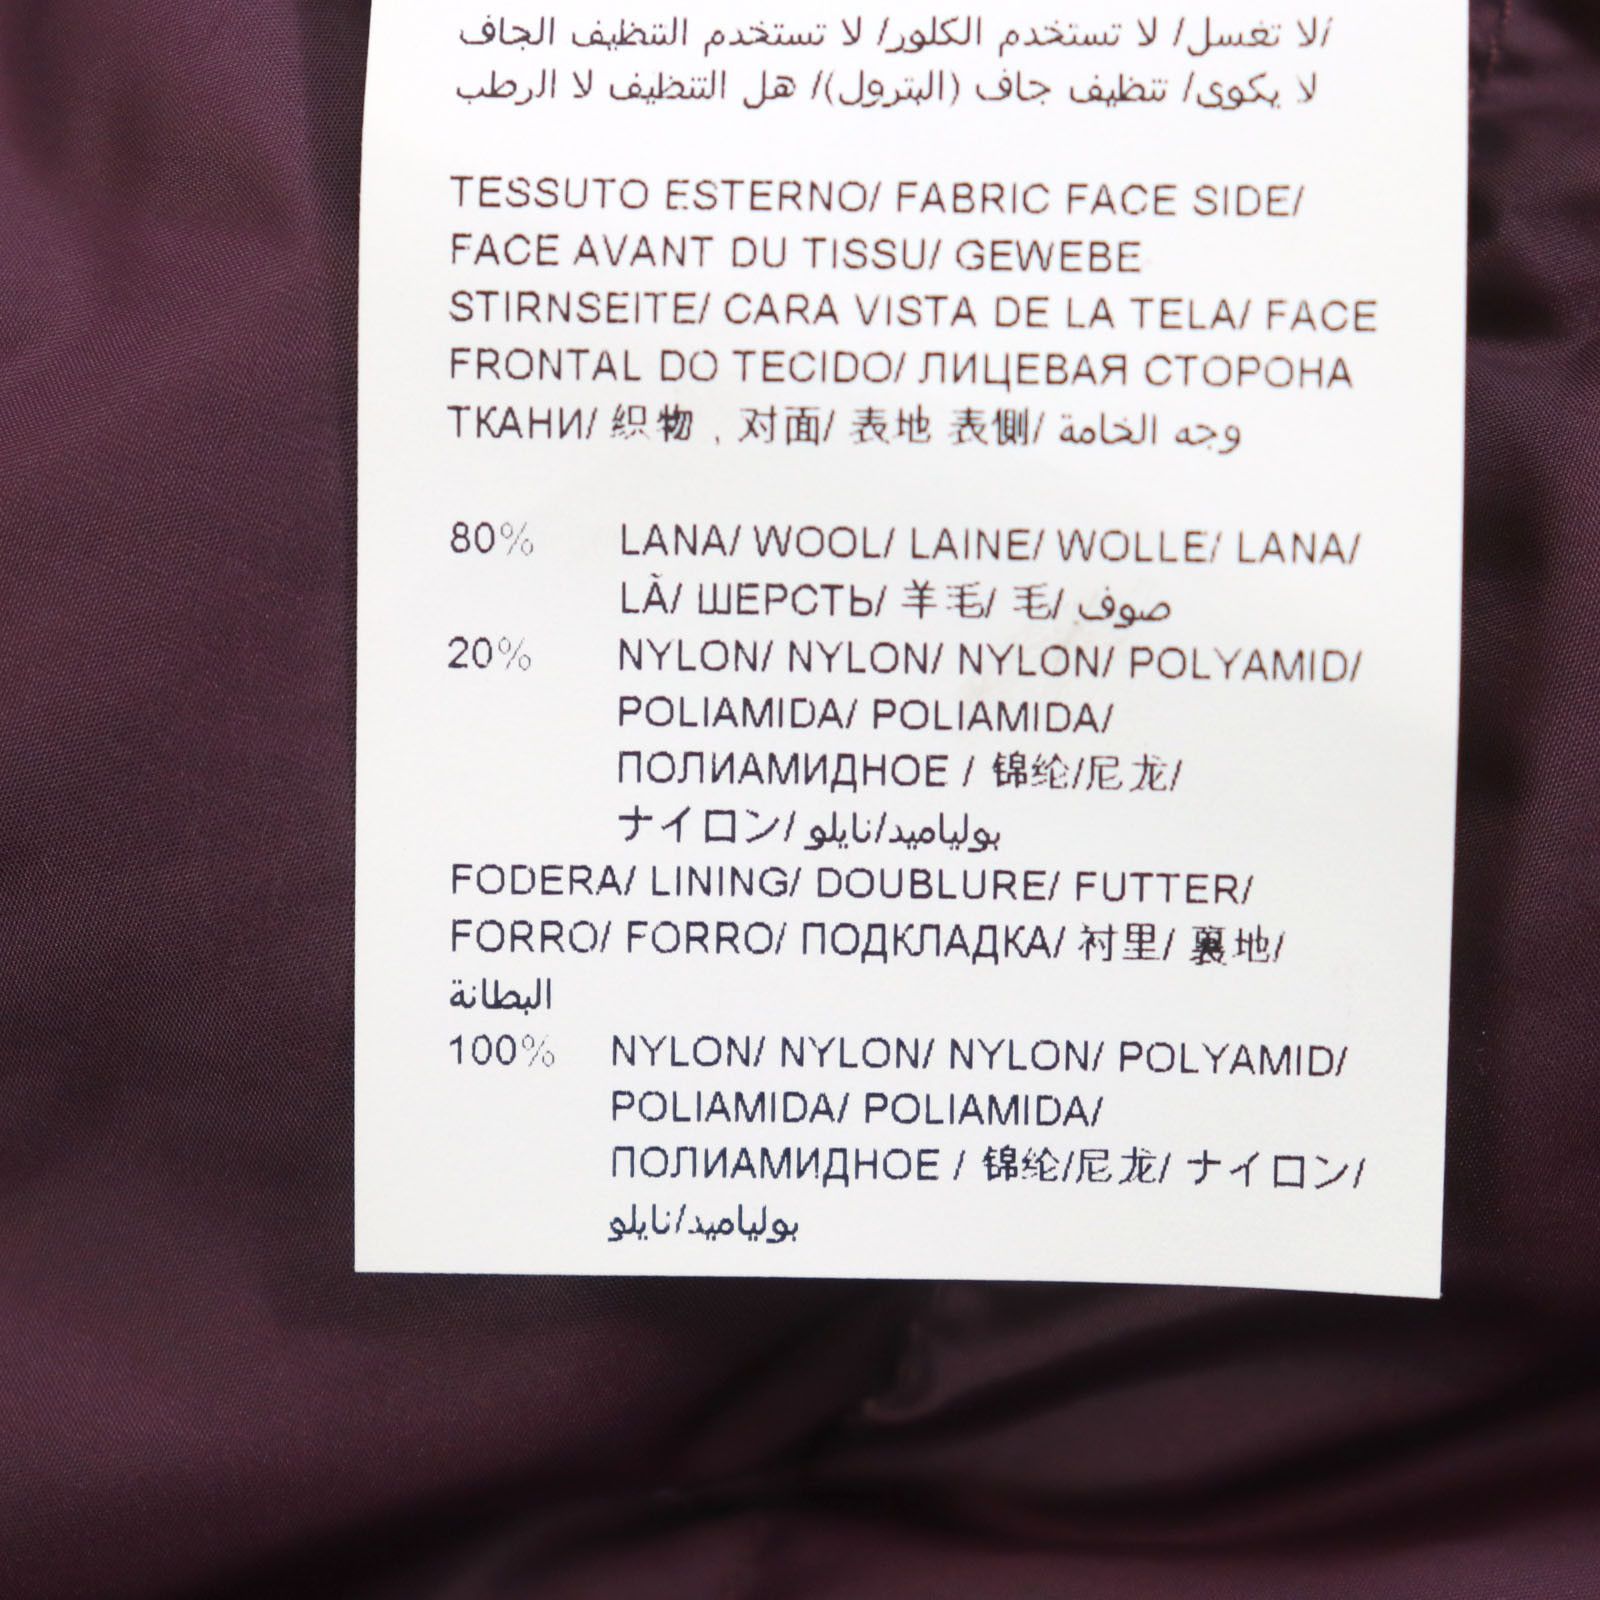 لا تغسل/ لا تستخدم الكلور/ لا تستخدم التنظيف الجاف/
لا يكوى/ تنظيف جاف (البترول)/ هل التنظيف لا الرطب
TESSUTO ESTERNO/ FABRIC FACE SIDE/
FACE AVANT DU TISSU/ GEWEBE
STIRNSEITE/ CARA VISTA DE LA TELA/ FACE
FRONTAL DO TECIDO/ ЛИЦЕВАЯ СТОРОНА
ТКАНИ/ 织物 , 对面/ 表地 表側/ وجه الخامة
80% LANA/ WOOL/ LAINE/ WOLLE/ LANA/
LÃ/ ШЕРСТЬ/ 羊毛/ 毛/ صوف
20% NYLON/ NYLON/ NYLON/ POLYAMID/
POLIAMIDA/ POLIAMIDA/
ПОЛИАМИДНОЕ / 锦纶/尼龙/
ナイロン/ بولياميد/نايلو
FODERA/ LINING/ DOUBLURE/ FUTTER/
FORRO/ FORRO/ ПОДКЛАДКА/ 衬里/ 裏地/
البطانة
100% NYLON/ NYLON/ NYLON/ POLYAMID/
POLIAMIDA/ POLIAMIDA/
ПОЛИАМИДНОЕ / 锦纶/尼龙/ ナイロン/
بولياميد/نايلو